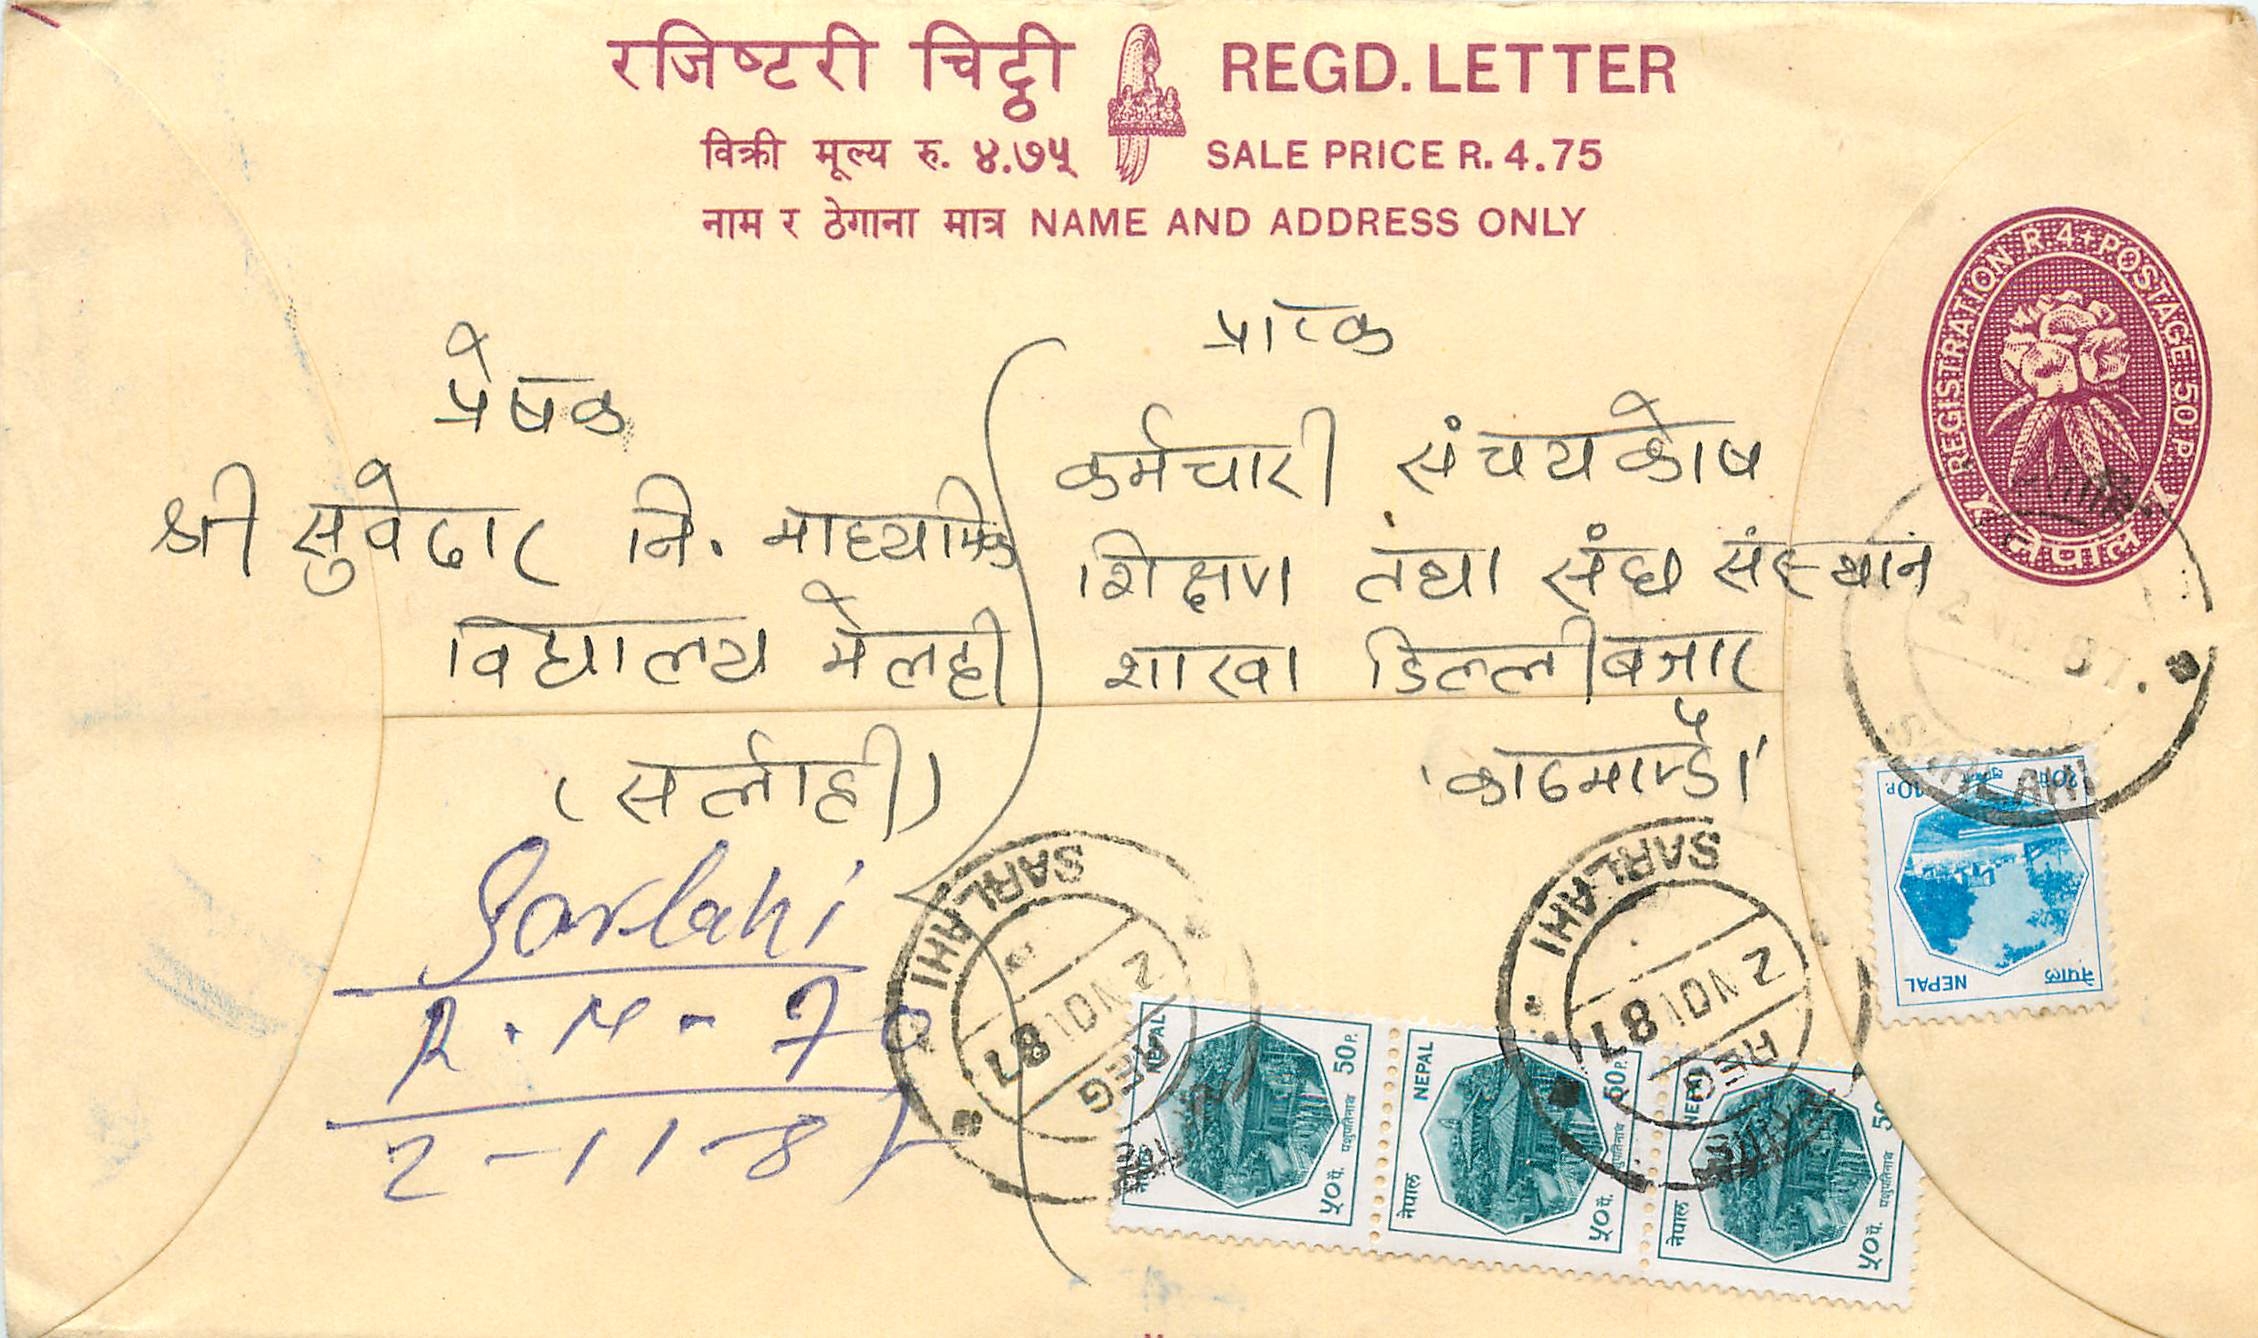 रजिष्टरी चिट्ठी REGD. LETTER
विक्री मूल्य रु. ४.७५ SALE PRICE R. 4.75
नाम र ठेगाना मात्र NAME AND ADDRESS ONLY
REGISTRATION R.4+POSTAGE 50 P.
नेपाल
प्रेषक
श्री सुवेदार नि. माध्यमिक
विद्यालय मेलही
(सर्लाही)
प्रापक
कर्मचारी संचयकोष
शिक्षण तथा संघ संस्थान
शाखा डिल्लीबजार
काठमाण्डौं
Sarlahi
2-11-87
SARLAHI
2 NOV 87
REG
SARLAHI
2 NOV 87
REG
SARLAHI
87
नेपाल NEPAL 50P. ५०पै. पशुपतिनाथ
नेपाल NEPAL 50P. ५०पै. पशुपतिनाथ
नेपाल NEPAL ५०पै. पशुपतिनाथ
नेपाल NEPAL 10P.